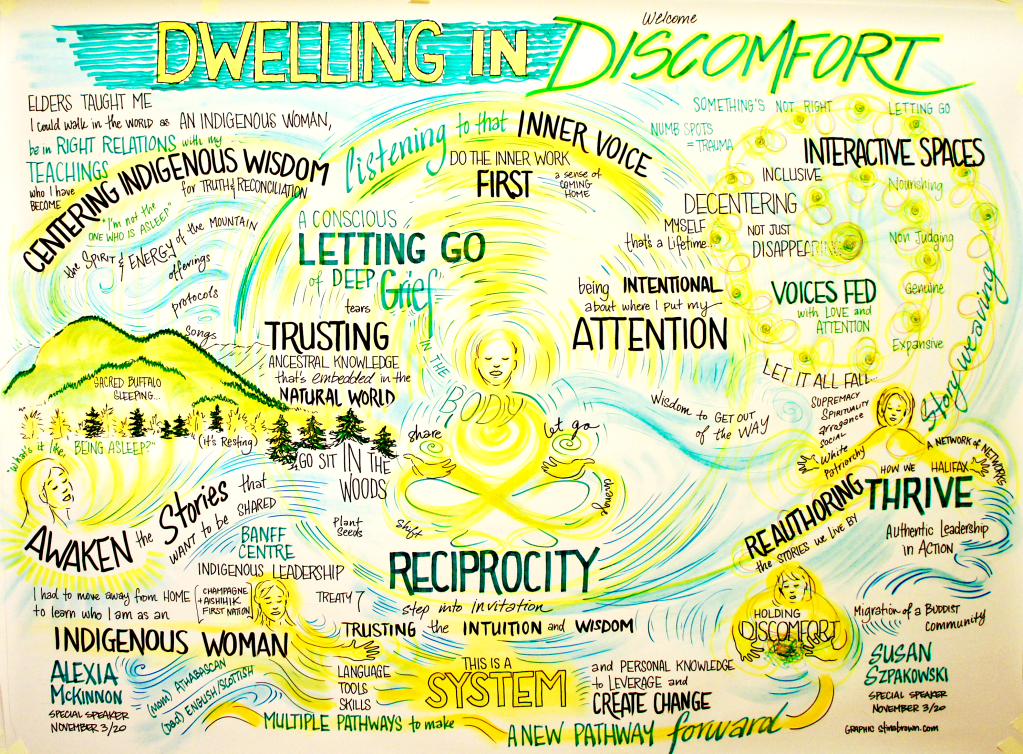 Welcome
DWELLING IN DISCOMFORT
ELDERS TAUGHT ME
I could walk in the world as AN INDIGENOUS WOMAN,
be in RIGHT RELATIONS with my
TEACHINGS
who I have
BECOME
CENTERING INDIGENOUS WISDOM
for TRUTH & RECONCILIATION
"I'm not the
ONE WHO IS ASLEEP"
the SPIRIT & ENERGY of the MOUNTAIN
offerings
protocols
songs
SACRED BUFFALO
SLEEPING...
"what's it like BEING ASLEEP?"
(it's Resting)
listening to that INNER VOICE
DO THE INNER WORK
FIRST
a sense of
COMING
HOME
A CONSCIOUS
LETTING GO
of DEEP Grief
tears
IN THE
BODY
TRUSTING
ANCESTRAL KNOWLEDGE
that's embedded in the
NATURAL WORLD
GO SIT IN THE
WOODS
share
let go
shift
change
SOMETHING'S NOT RIGHT
LETTING GO
NUMB SPOTS
= TRAUMA
INTERACTIVE SPACES
INCLUSIVE
Nourishing
DECENTERING
MYSELF
that's a lifetime...
NOT JUST
DISAPPEARING
Non Judging
being INTENTIONAL
about where I put my
ATTENTION
VOICES FED
with LOVE and
ATTENTION
Genuine
Expansive
Story weaving
LET IT ALL FALL...
SUPREMACY
SPIRITUALITY
arrogance
SOCIAL
White
Patriarchy
Wisdom to GET OUT
of the WAY
A NETWORK of NETWORKS
HOW WE
HALIFAX
THRIVE
REAUTHORING
the STORIES we LIVE BY
Authentic Leadership
in ACTION
AWAKEN the Stories that
WANT to be SHARED
BANFF
CENTRE
INDIGENOUS LEADERSHIP
Plant
Seeds
RECIPROCITY
step into Invitation
I had to move away from HOME
to learn who I am as an
CHAMPAGNE
+ AISHIHIK
FIRST NATION
TREATY 7
INDIGENOUS WOMAN
TRUSTING the INTUITION and WISDOM
HOLDING
DISCOMFORT
Migration of a BUDDIST
community
ALEXIA
McKINNON
SPECIAL SPEAKER
NOVEMBER 3/20
(mom) ATHABASCAN
(DAD) ENGLISH/SCOTTISH
LANGUAGE
TOOLS
SKILLS
THIS IS A
SYSTEM
and PERSONAL KNOWLEDGE
to LEVERAGE and
CREATE CHANGE
MULTIPLE PATHWAYS to make
A NEW PATHWAY forward
SUSAN
SZPAKOWSKI
SPECIAL SPEAKER
NOVEMBER 3/20
GRAPHIC stinabrown.com